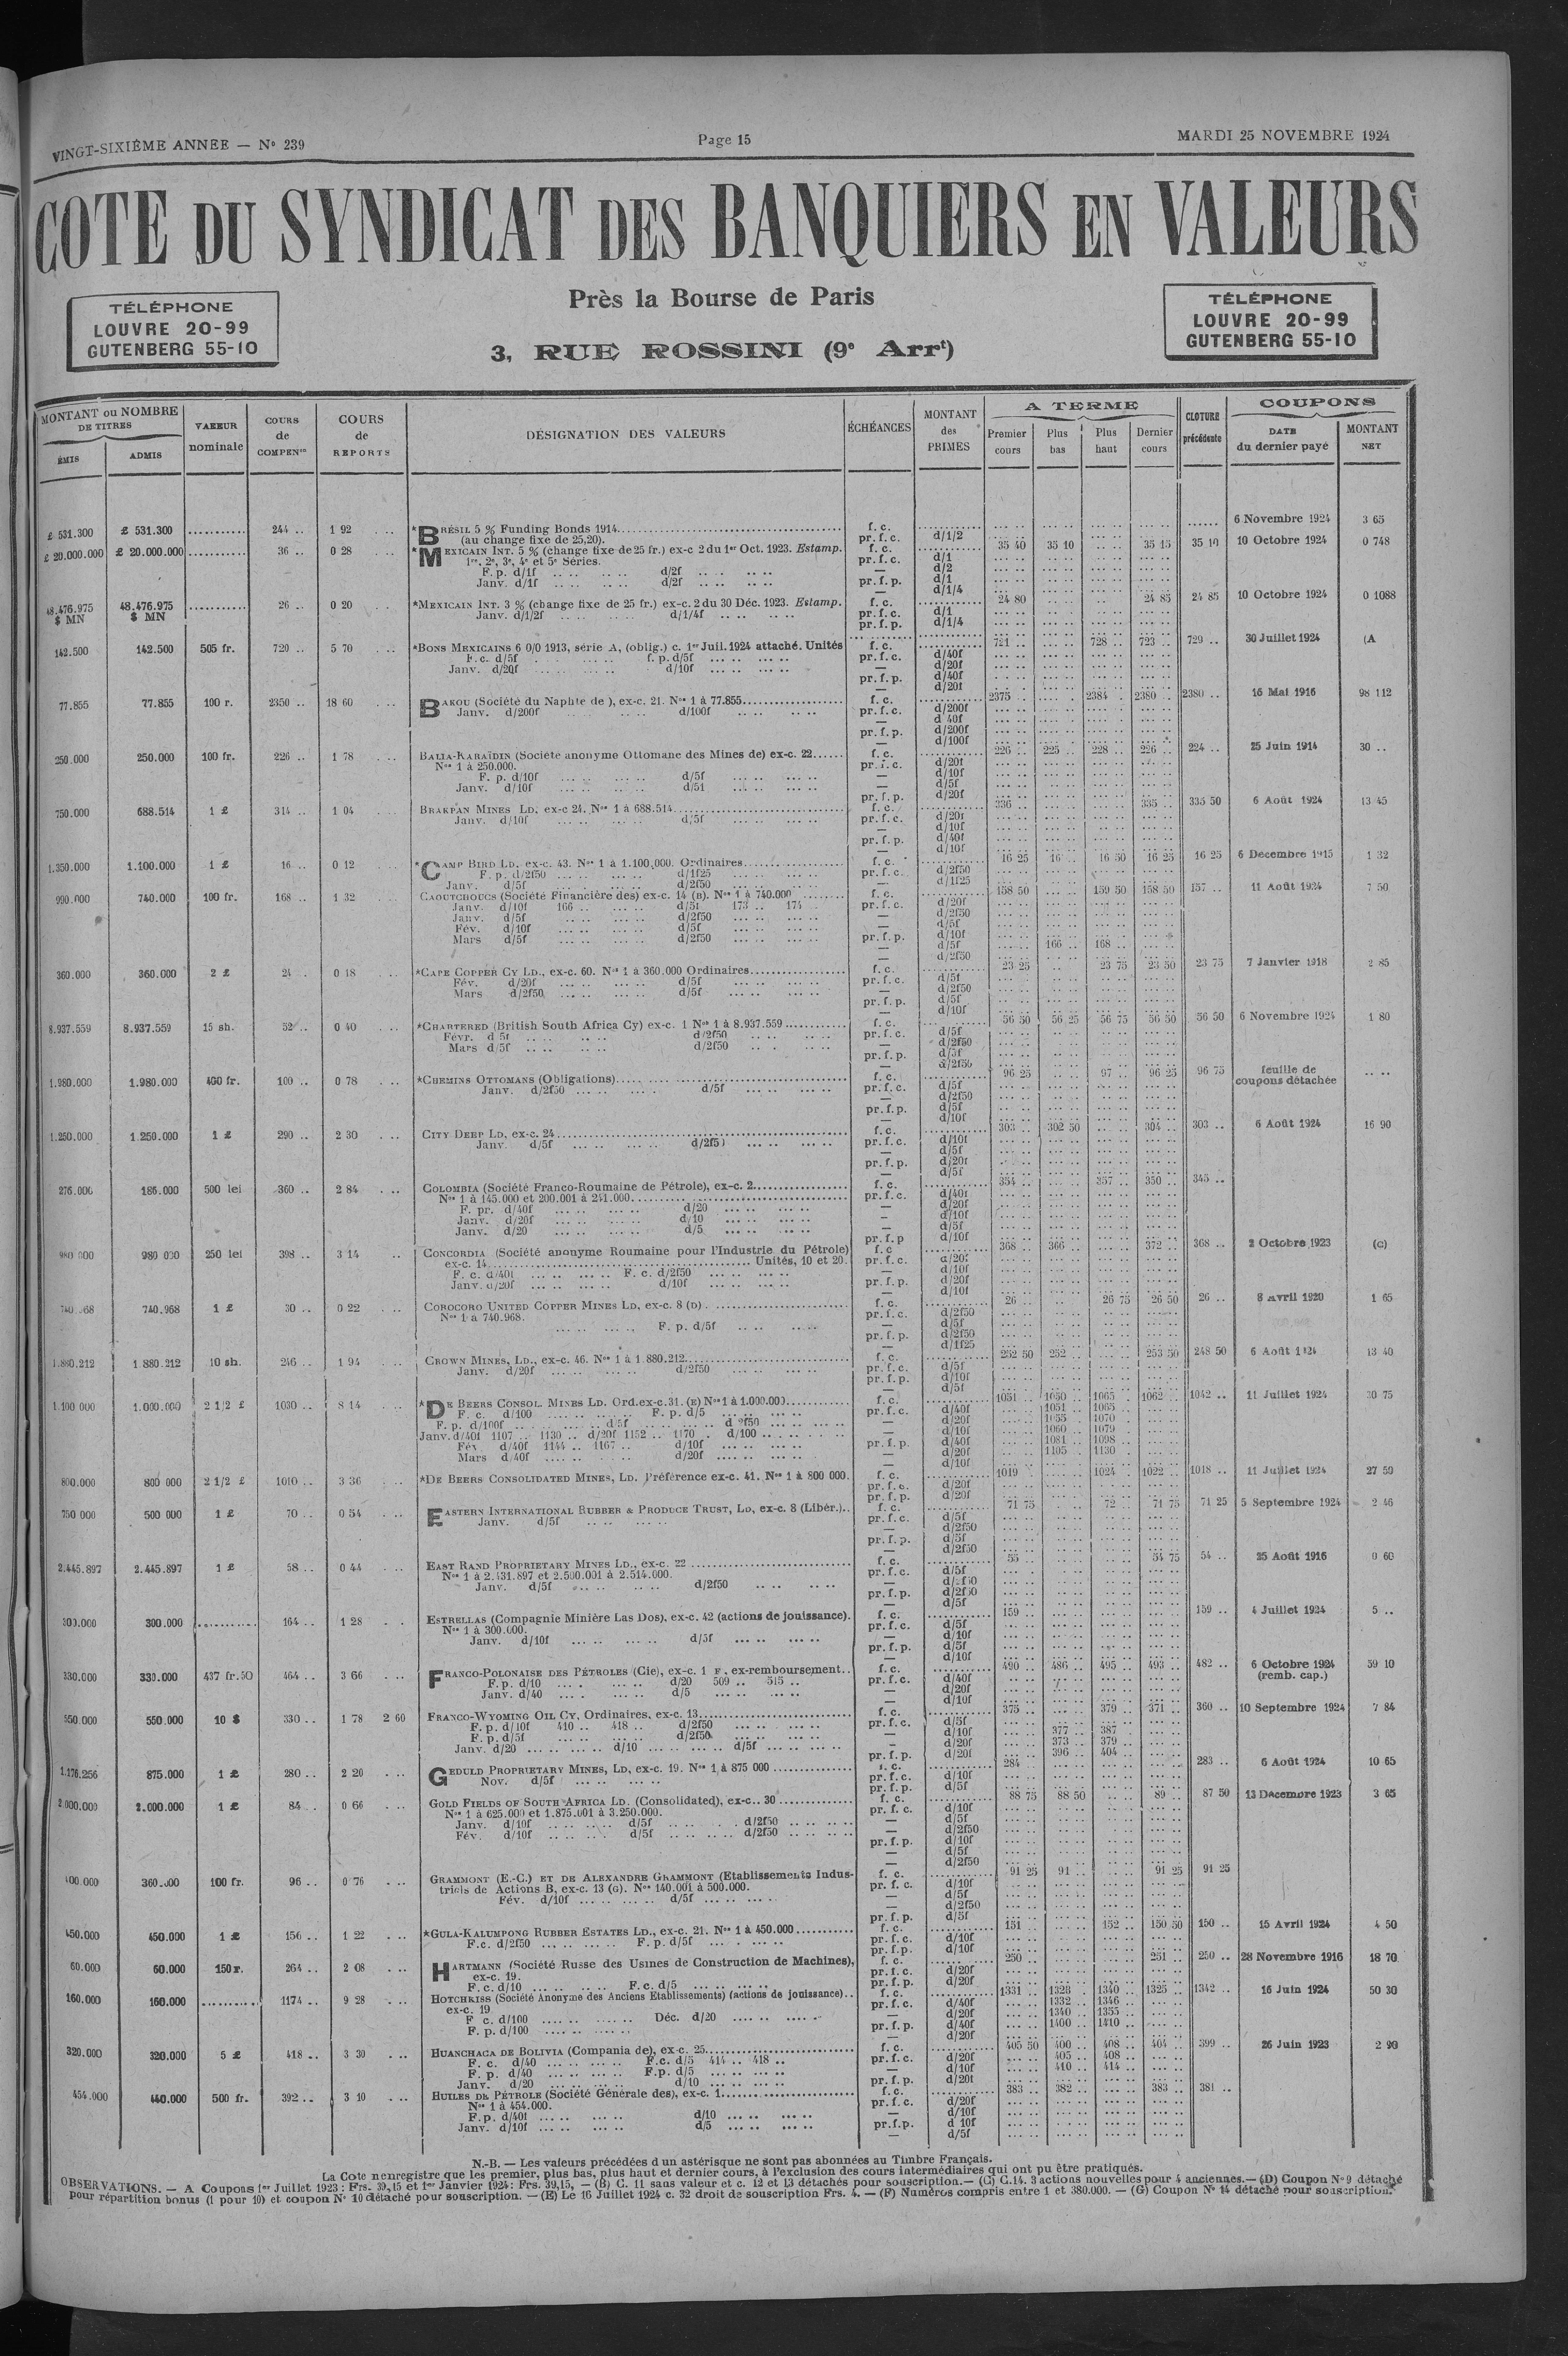 VINGT-SIXIÈME ANNEE — No 239
Page 15
MARDI 25 NOVEMBRE 1924
COTE DU SYNDICAT DES BANQUIERS EN VALEURS
TÉLÉPHONE
LOUVRE 20-99
GUTENBERG 55-10
Près la Bourse de Paris
3, RUE ROSSINI (9e Arrt)
TÉLÉPHONE
LOUVRE 20-99
GUTENBERG 55-10
MONTANT ou NOMBRE DE TITRES
ÉMIS
ADMIS
VALEUR nominale
COURS de COMPENon
COURS de REPORTS
DÉSIGNATION DES VALEURS
ÉCHÉANCES
MONTANT des PRIMES
A TERME
Premier cours
Plus bas
Plus haut
Dernier cours
CLOTURE précédente
COUPONS
DATE du dernier payé
MONTANT NET
£ 531.300 £ 531.300 244 .. 1 92 *BRÉSIL 5 % Funding Bonds 1914 f. c. 6 Novembre 1924 3 65
(au change fixe de 25,20). pr. f. c. d/1/2
£ 20.000.000 £ 20.000.000 36 .. 0 28 *MEXICAIN INT. 5 % (change fixe de 25 fr.) ex-c 2 du 1er Oct. 1923. Estamp. f. c. 35 40 35 10 35 15 35 10 10 Octobre 1924 0 748
1re, 2e, 3e, 4e et 5e Séries. pr. f. c. d/1
F. p. d/1f d/2f — d/2
Janv. d/1f d/2f pr. f. p. d/1
— d/1/4
48.476.975 $ MN 48.476.975 $ MN 26 .. 0 20 *MEXICAIN INT. 3 % (change fixe de 25 fr.) ex-c. 2 du 30 Déc. 1923. Estamp. f. c. 24 80 24 85 24 85 10 Octobre 1924 0 1088
Janv. d/1/2f d/1/4f pr. f. c. d/1
pr. f. p. d/1/4
142.500 142.500 505 fr. 720 .. 5 70 *BONS MEXICAINS 6 0/0 1913, série A, (oblig.) c. 1er Juil. 1924 attaché. Unités f. c. 721 728 .. 723 .. 729 .. 30 Juillet 1924 (A
F. c. d/5f f. p. d/5f pr. f. c. d/40f
Janv. d/20f d/10f — d/20f
pr. f. p. d/40f
— d/20f
77.855 77.855 100 r. 2350 .. 18 60 BAKOU (Société du Naphte de), ex-c. 21. Nos 1 à 77.855 f. c. 2375 .. 2384 .. 2380 .. 2380 .. 16 Mai 1916 98 112
Janv. d/200f d/100f pr. f. c. d/200f
— d 40f
pr. f. p. d/200f
— d/100f
250.000 250.000 100 fr. 226 .. 1 78 BALIA-KARAÏDIN (Société anonyme Ottomane des Mines de) ex-c. 22 f. c. 226 .. 225 .. 228 .. 226 .. 224 .. 25 Juin 1914 30 ..
Nos 1 à 250.000. pr. f. c. d/20f
F. p. d/10f d/5f — d/10f
Janv. d/10f d/5f — d/5f
pr. f. p. d/20f
750.000 688.514 1 £ 314 .. 1 04 BRAKPAN MINES LD, ex-c 24. Nos 1 à 688.514 f. c. 336 .. 335 .. 335 50 6 Août 1924 13 45
Janv. d/10f d/5f pr. f. c. d/20f
— d/10f
pr. f. p. d/40f
— d/10f
1.350.000 1.100.000 1 £ 16 .. 0 12 *CAMP BIRD LD. ex-c. 43. Nos 1 à 1.100,000. Ordinaires f. c. 16 25 16 .. 16 50 16 25 16 25 6 Décembre 1915 1 32
F. p. d/2f50 d/1f25 pr. f. c. d/2f50
Janv. d/5f d/2f50 — d/1f25
990.000 740.000 100 fr. 168 .. 1 32 CAOUTCHOUCS (Société Financière des) ex-c. 14 (B). Nos 1 à 740.000 f. c. 158 50 159 50 158 50 157 .. 11 Août 1924 7 50
Janv. d/10f 166 .. d/5f 173 .. 174 pr. f. c. d/20f
Janv. d/5f d/2f50 — d/2f50
Fév. d/10f d/5f — d/5f
Mars d/5f d/2f50 pr. f. p. d/10f
— d/5f 166 .. 168 ..
— d/2f50
360.000 360.000 2 £ 24 .. 0 18 *CAPE COPPER CY LD., ex-c. 60. Nos 1 à 360.000 Ordinaires f. c. 23 25 23 75 23 50 23 75 7 Janvier 1918 2 85
Fév. d/20f d/5f pr. f. c. d/5f
Mars d/2f50 d/5f — d/2f50
pr. f. p. d/5f
— d/10f
8.937.559 8.937.559 15 sh. 52 .. 0 40 *CHARTERED (British South Africa Cy) ex-c. 1 Nos 1 à 8.937.559 f. c. 56 50 56 25 56 75 56 50 56 50 6 Novembre 1924 1 80
Févr. d 5f d/2f50 pr. f. c. d/5f
Mars d/5f d/2f50 — d/2f50
pr. f. p. d/5f
— d/2f50
1.980.000 1.980.000 400 fr. 100 .. 0 78 *CHEMINS OTTOMANS (Obligations) f. c. 96 25 97 .. 96 25 96 75 feuille de coupons détachée
Janv. d/2f50 d/5f pr. f. c. d/5f
— d/2f50
pr. f. p. d/5f
— d/10f
1.250.000 1.250.000 1 £ 290 .. 2 30 CITY DEEP LD, ex-c. 24 f. c. 303 .. 302 50 304 .. 303 .. 6 Août 1924 16 90
Janv. d/5f d/2f5 pr. f. c. d/10f
— d/5f
pr. f. p. d/20f
— d/5f
276.000 186.000 500 lei 360 .. 2 84 COLOMBIA (Société Franco-Roumaine de Pétrole), ex-c. 2 f. c. 354 .. 357 .. 350 .. 345 ..
Nos 1 à 145.000 et 200.001 à 241.000 pr. f. c. d/40f
F. pr. d/40f d/20 — d/20f
Janv. d/20f d/10 — d/10f
Janv. d/20 d/5 — d/5f
pr. f. p d/10f
980 000 980 000 250 lei 398 .. 3 14 CONCORDIA (Société anonyme Roumaine pour l'Industrie du Pétrole) f. c 368 .. 366 .. 372 .. 368 .. 2 Octobre 1923 (C)
ex-c. 14 Unités, 10 et 20. pr. f. c. d/20f
F. c. d/40f F. c. d/2f50 — d/10f
Janv. d/20f d/10f pr. f. p. d/20f
— d/10f
740.968 740.968 1 £ 30 .. 0 22 COROCORO UNITED COPPER MINES LD, ex-c. 8 (D) f. c. 26 .. 26 75 26 50 26 .. 8 Avril 1920 1 65
Nos 1 à 740.968. pr. f. c. d/2f50
F. p. d/5f — d/5f
pr. f. p. d/2f50
— d/1f25
1.880.212 1 880.212 10 sh. 246 .. 1 94 CROWN MINES, LD., ex-c. 46. Nos 1 à 1.880.212 f. c. 252 50 252 .. 253 50 248 50 6 Août 1924 13 40
Janv. d/20f d/2f50 pr. f. c. d/5f
pr. f. p. d/10f
— d/5f
1.100 000 1.000.000 2 1/2 £ 1030 .. 8 14 *DE BEERS CONSOL. MINES LD. Ord. ex-c. 31. (E) Nos 1 à 1.000.000 f. c. 1051 .. 1050 .. 1065 .. 1062 .. 1042 .. 11 Juillet 1924 30 75
F. c. d/100 F. p. d/5 pr. f. c. d/40f 1051 .. 1065 ..
F. p. d/100f d/5f d 2f50 — d/20f 1055 1070
Janv. d/40f 1107 .. 1130 .. d/20f 1152 .. 1170 . d/100 — d/10f 1060 .. 1079 ..
Fév d/40f 1144 .. 1167 .. d/10f pr. f. p. d/40f 1081 .. 1098 ..
Mars d/40f d/20f — d/20f 1105 .. 1130 ..
— d/10f
800.000 800 000 2 1/2 £ 1010 .. 3 36 *DE BEERS CONSOLIDATED MINES, LD. Préférence ex-c. 41. Nos 1 à 800 000. f. c. 1019 1024 .. 1022 .. 1018 .. 11 Juillet 1924 27 50
pr. f. c. d/20f
pr. f. p. d/20f
750 000 500 000 1 £ 70 .. 0 54 EASTERN INTERNATIONAL RUBBER & PRODUCE TRUST, LD, ex-c. 8 (Libér.) f. c. 71 75 72 .. 71 75 71 25 5 Septembre 1924 2 46
Janv. d/5f pr. f. c. d/5f
— d/2f50
pr. f. p. d/5f
— d/2f50
2.445.897 2.445.897 1 £ 58 .. 0 44 EAST RAND PROPRIETARY MINES LD., ex-c. 22 f. c. 55 .. 54 75 54 .. 25 Août 1916 0 60
Nos 1 à 2.431.897 et 2.500.001 à 2.514.000. pr. f. c. d/5f
Janv. d/5f d/2f50 — d/2f50
pr. f. p. d/2f50
— d/5f
300.000 300.000 164 .. 1 28 ESTRELLAS (Compagnie Minière Las Dos), ex-c. 42 (actions de jouissance). f. c. 159 .. 159 .. 4 Juillet 1924 5 ..
Nos 1 à 300.000. pr. f. c. d/5f
Janv. d/10f d/5f — d/10f
pr. f. p. d/5f
— d/10f
330.000 330.000 437 fr. 50 464 .. 3 66 FRANCO-POLONAISE DES PÉTROLES (Cie), ex-c. 1 F, ex-remboursement f. c. 490 .. 486 .. 495 .. 493 .. 482 .. 6 Octobre 1924 (remb. cap.) 59 10
F. p. d/10 d/20 509 .. 515 .. pr. f. c. d/40f
Janv. d/40 d/5 — d/20f
— d/10f
550.000 550.000 10 $ 330 .. 1 78 2 60 FRANCO-WYOMING OIL CY, Ordinaires, ex-c. 13 f. c. 375 .. 379 .. 371 .. 360 .. 10 Septembre 1924 7 84
F. p. d/10f 410 .. 418 .. d/2f50 pr. f. c. d/5f
F. p. d/5f d/2f50 — d/10f 377 .. 387 ..
Janv. d/20 d/10 d/5f — d/20f 373 .. 379 ..
pr. f. p. d/20f 396 .. 404 ..
1.176.256 875.000 1 £ 280 .. 2 20 GEDULD PROPRIETARY MINES, LD, ex-c. 19. Nos 1 à 875 000 f. c. 284 283 .. 6 Août 1924 10 65
Nov. d/5f pr. f. c. d/10f
pr. f. p. d/5f
2.000.000 2.000.000 1 £ 84 .. 0 66 GOLD FIELDS OF SOUTH AFRICA LD. (Consolidated), ex-c.. 30 f. c. 88 75 88 50 89 .. 87 50 13 Décembre 1923 3 65
Nos 1 à 625.000 et 1.875.001 à 3.250.000. pr. f. c. d/10f
Janv. d/10f d/5f d/2f50 — d/5f
Fév. d/10f d/5f d/2f50 — d/2f50
pr. f. p. d/10f
— d/5f
— d/2f50
400.000 360.000 100 fr. 96 .. 0 76 GRAMMONT (E.-C.) ET DE ALEXANDRE GRAMMONT (Etablissements Indus- f. c. 91 25 91 .. 91 25 91 25
triels de Actions B, ex-c. 13 (G). Nos 140.001 à 500.000. pr. f. c. d/10f
Fév. d/10f d/5f — d/5f
— d/2f50
pr. f. p. d/5f
450.000 450.000 1 £ 156 .. 1 22 *GULA-KALUMPONG RUBBER ESTATES LD., ex-c. 21. Nos 1 à 450.000 f. c. 151 152 .. 150 50 150 .. 15 Avril 1924 4 50
F.c. d/2f50 F. p. d/5f pr. f. c. d/10f
pr. f. p. d/10f
60.000 60.000 150 r. 264 .. 2 08 HARTMANN (Société Russe des Usines de Construction de Machines), f. c. 250 .. 251 .. 250 .. 28 Novembre 1916 18 70
ex-c. 19. pr. f. c. d/20f
F. c. d/10 F. c. d/5 pr. f. p. d/20f
160.000 160.000 1174 .. 9 28 HOTCHKISS (Société Anonyme des Anciens Etablissements) (actions de jouissance) f. c. 1331 .. 1328 . 1340 .. 1325 .. 1342 .. 16 Juin 1924 50 30
ex-c. 19 pr. f. c. d/40f 1332 .. 1346 ..
F c. d/100 Déc. d/20 — d/20f 1340 .. 1355 ..
F. p. d/100 pr. f. p. d/40f 1400 .. 1410 ..
— d/20f
320.000 320.000 5 £ 418 .. 3 30 HUANCHACA DE BOLIVIA (Compania de), ex-c. 25 f. c. 405 50 400 .. 408 .. 404 .. 399 .. 26 Juin 1923 2 90
F. c. d/40 F.c. d/5 414 .. 418 .. pr. f. c. d/20f 405 .. 408 ..
F. p. d/40 F.p. d/5 — d/10f 410 .. 414 ..
Janv. d/20 d/10 pr. f. p. d/20f
454.000 440.000 500 fr. 392 .. 3 10 HUILES DE PÉTROLE (Société Générale des), ex-c. 1 f. c. 383 .. 382 .. 383 .. 381 ..
Nos 1 à 454.000. pr. f. c. d/20f
F. p. d/40f d/10 — d/10f
Janv. d/10f d/5 pr. f. p. d 10f
— d/5f
N.-B. — Les valeurs précédées d un astérisque ne sont pas abonnées au Timbre Français.
La Cote n enregistre que les premier, plus bas, plus haut et dernier cours, à l'exclusion des cours intermédiaires qui ont pu être pratiqués.
OBSERVATIONS. — A Coupons 1er Juillet 1923 : Frs. 39,15 et 1er Janvier 1924 : Frs. 39,15, — (B) C. 11 sans valeur et c. 12 et 13 détachés pour souscription. — (C) C.14. 3 actions nouvelles pour 4 anciennes. — (D) Coupon No 9 détaché
pour répartition bonus (1 pour 10) et coupon No 10 détaché pour souscription. — (E) Le 16 Juillet 1924 c. 32 droit de souscription Frs. 4. — (F) Numéros compris entre 1 et 380.000. — (G) Coupon No 14 détaché pour souscription.